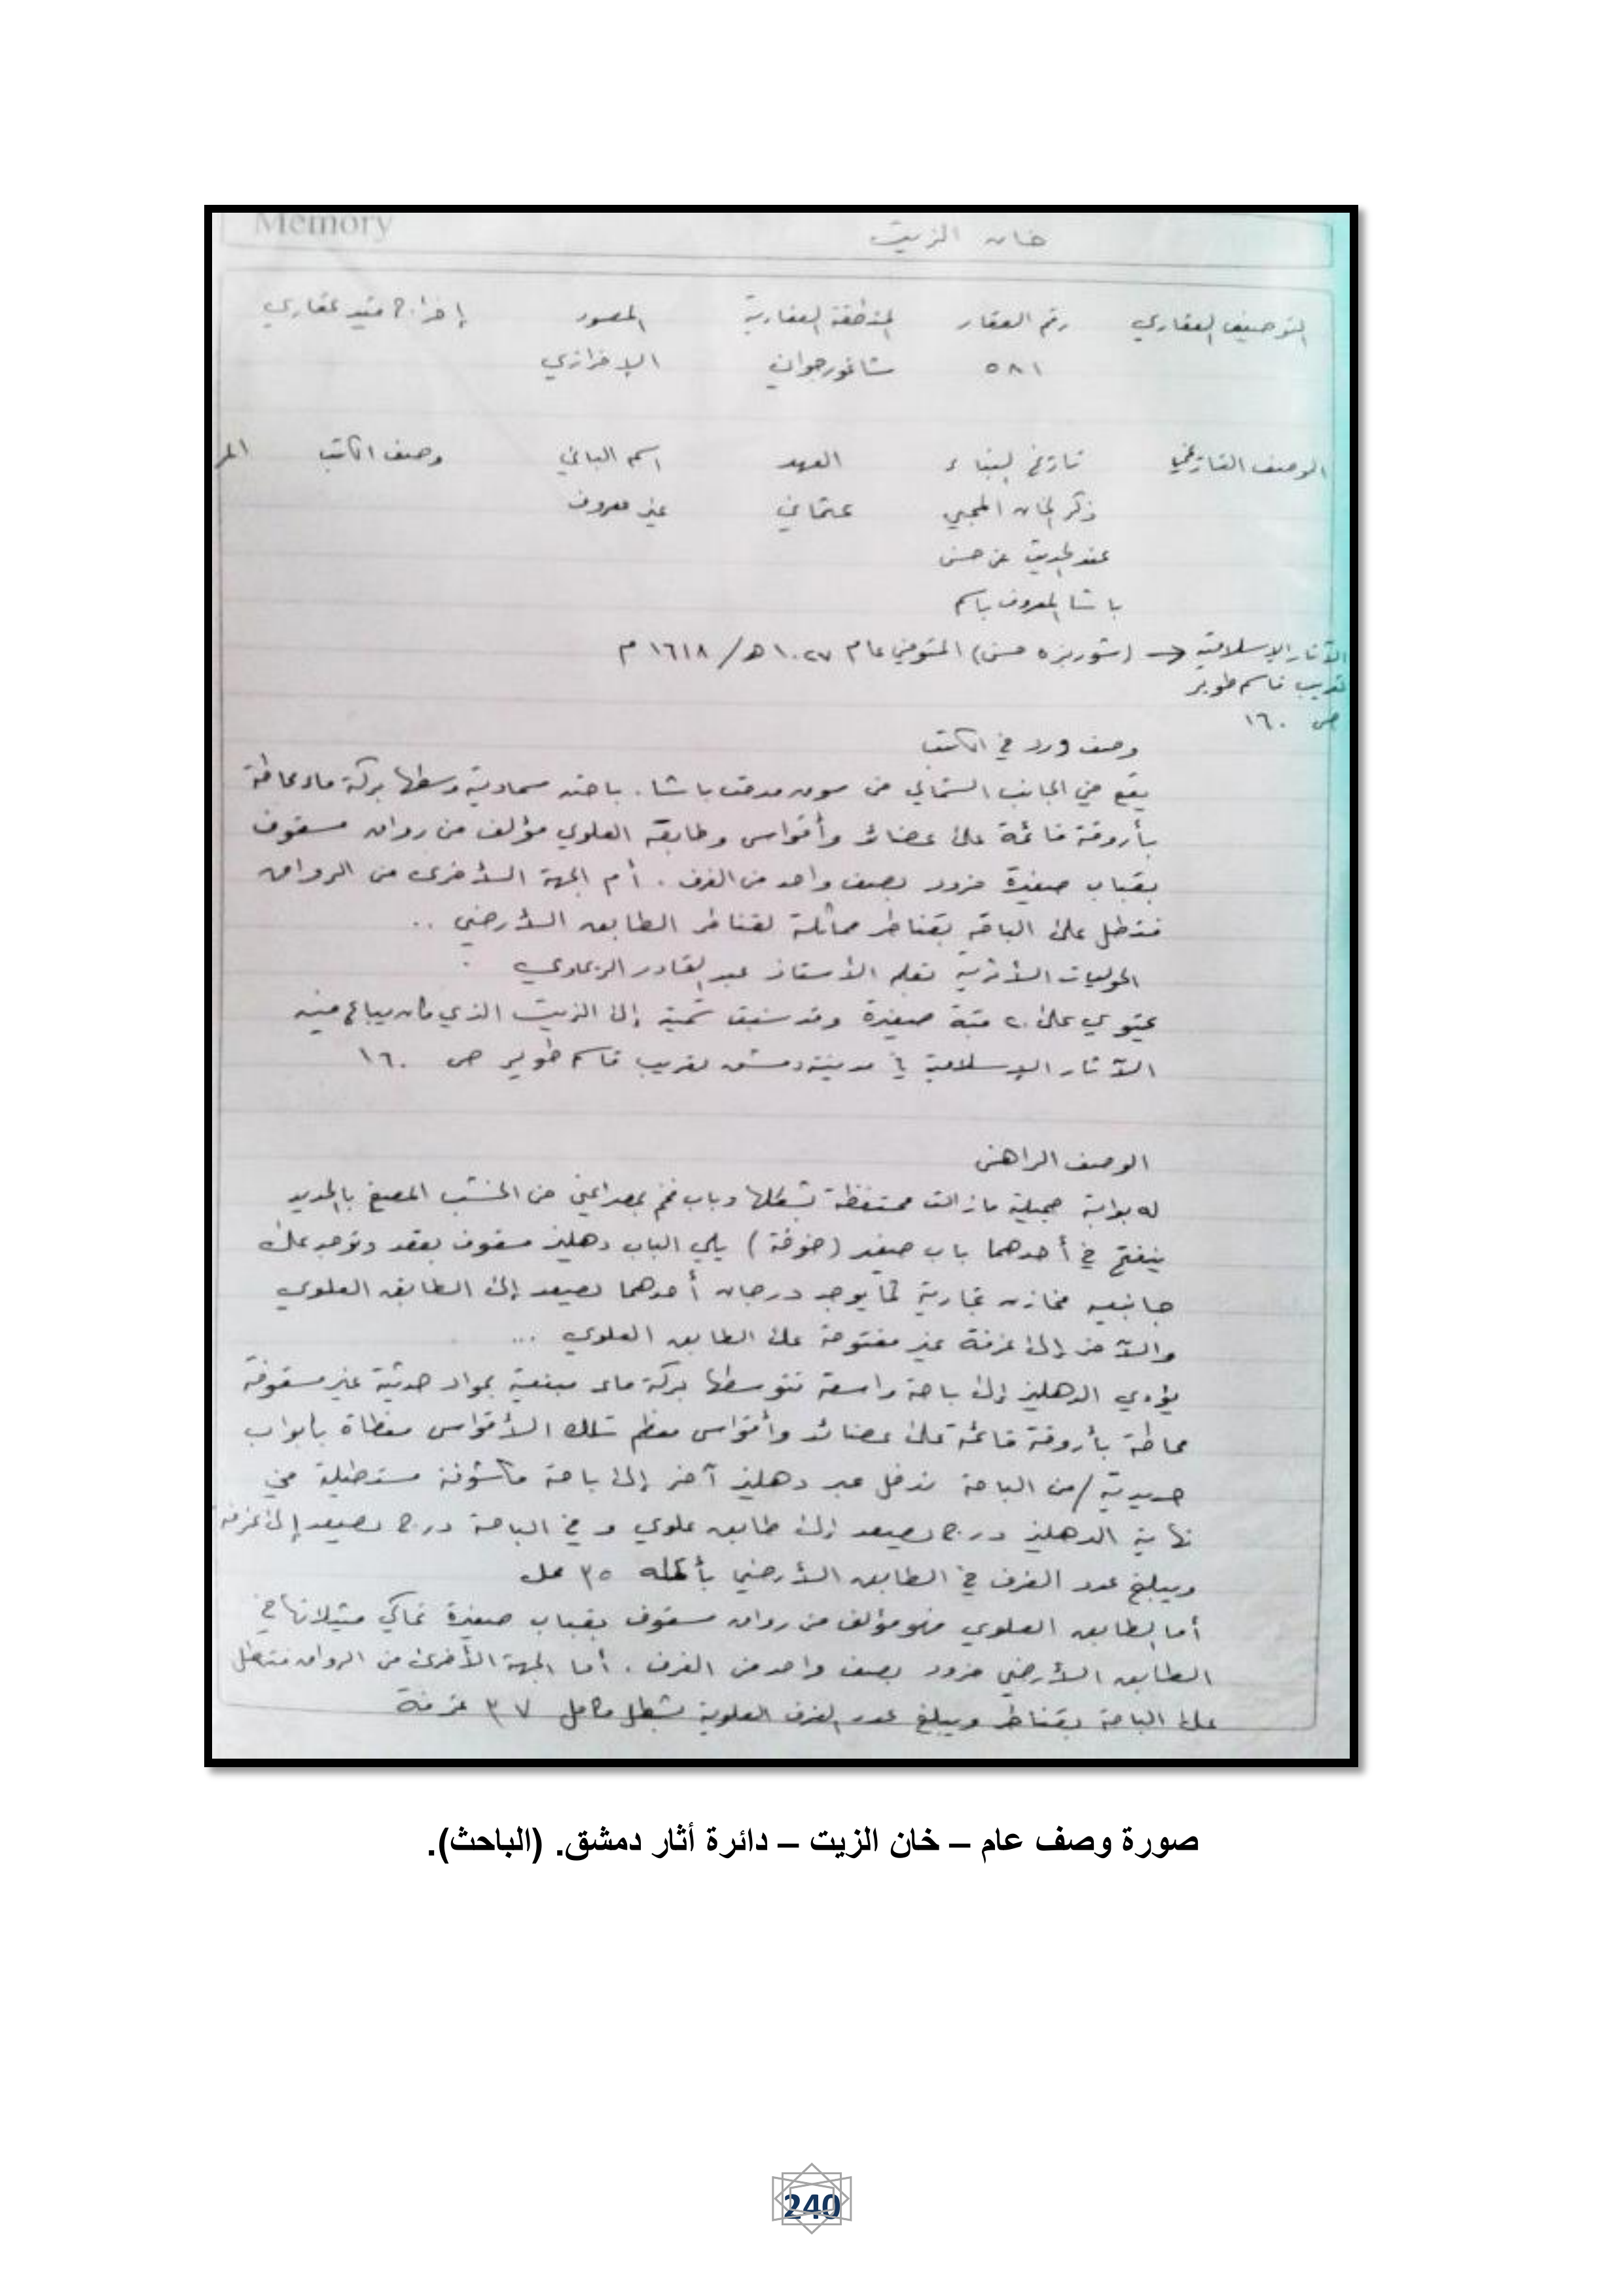 Memory
خان الزيت
التوصيف العقاري رقم العقار المنطقة العقارية المصور إخراج قيد عقاري
٥٨١ شاغور جواني الإفرازي
الوصف التاريخي تاريخ البناء العهد اسم الباني وصف الكاتب
ذكر الخان المحبي عثماني غير معروف
عند الحديث عن حسن
باشا المعروف باسم
الآثار الإسلامية ← (شوربزه حسن) المتوفي عام ١٠٢٧ هـ / ١٦١٨ م
تعريب قاسم طوير
ص ١٦٠
وصف ورد في الكتب
يقع في الجانب الشمالي من سوق مدحت باشا . باحته سماوية وسطها بركة ماء محاطة
بأروقة قائمة على عضائد وأقواس وطابقه العلوي مؤلف من رواق مسقوف
بقباب صغيرة مزود بصف واحد من الغرف . أم الجهة الأخرى من الرواق
فتطل على الباقه بقناطر مماثلة لقناطر الطابق الأرضي ..
الحوليات الأثرية بقلم الأستاذ عبد القادر الريحاوي :
يحتوي على ٢٠ قبة صغيرة وقد سبق تسميته إلى الزيت الذي كان يباع فيه
الآثار الإسلامية في مدينة دمشق تعريب قاسم طوير ص ١٦٠
الوصف الراهن
له بوابة جميلة مازالت محتفظة بشكلها وباب فخم بمصراعين من الخشب المصفح بالحديد
ينفتح في أحدهما باب صغير (خوخة) يلي الباب دهليز مسقوف بعقد وتوجد على
جانبيه مخازن تجارية كما يوجد درجان أحدهما يصعد إلى الطابق العلوي
والآخر إلى غرفة غير مفتوحة على الطابق العلوي ...
يؤدي الدهليز إلى باحة واسعة تتوسطها بركة ماء مبنية بمواد حديثة غير مسقوفة
محاطة بأروقة قائمة على عضائد وأقواس معظم تلك الأقواس مغطاة بأبواب
حديدية / من الباحة ندخل عبر دهليز آخر إلى باحة مكشوفة مستطيلة في
نهاية الدهليز درج يصعد إلى طابق علوي و في الباحة درج يصعد إلى غرفة
ويبلغ عدد الغرف في الطابق الأرضي بأكمله ٣٥ محل
أما الطابق العلوي فهو مؤلف من رواق مسقوف بقباب صغيرة تحاكي مثيلاتها في
الطابق الأرضي مزود بصف واحد من الغرف . أما الجهة الأخرى من الرواق فتطل
على الباحة بقناطر ويبلغ عدد الغرف العلوية بشكل كامل ٣٧ غرفة
صورة وصف عام – خان الزيت – دائرة أثار دمشق. (الباحث).
240